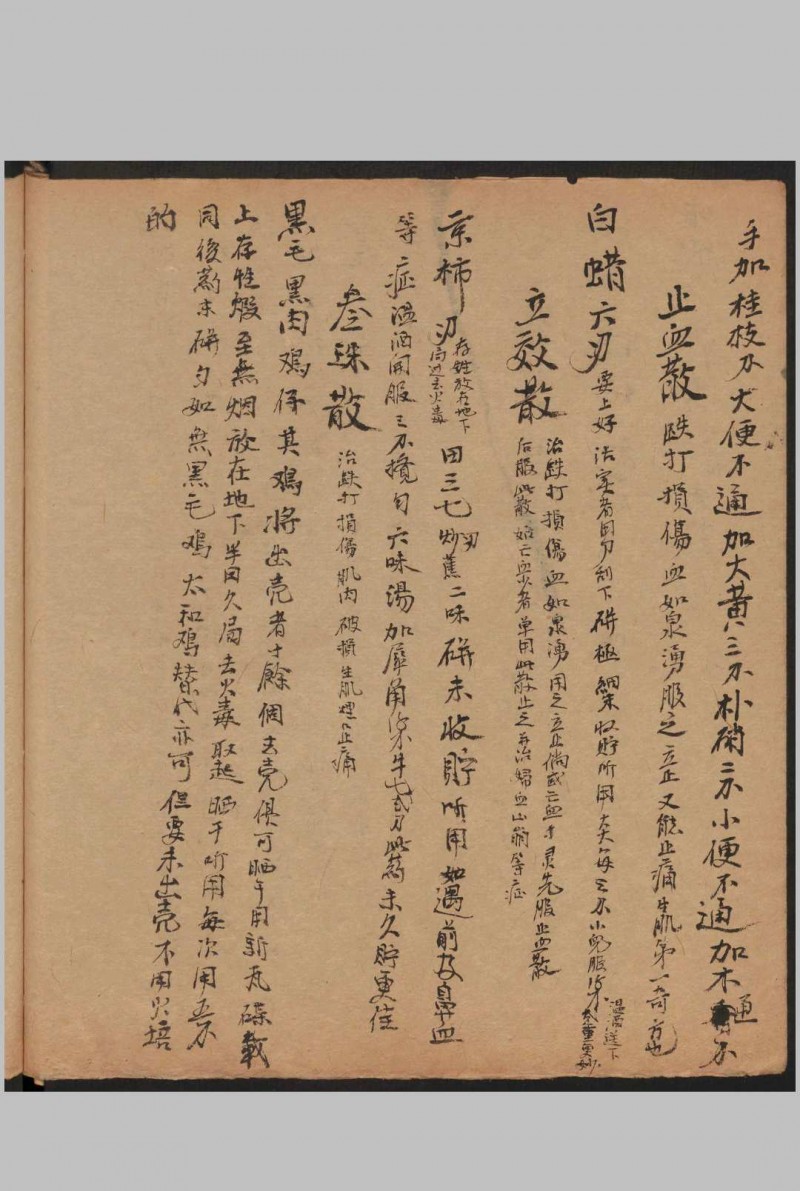 手加桂枝 大便不通加大黃 三 朴硝二 小便不通加木通
止血散 跌打損傷血如泉湧服之立止又能止痛生肌第一奇方也
白蜡六 要上好 者用刀刮下研極細 收貯听用大人每三 小兒服 温酒送下
立效散 治跌打損傷血如泉湧用之立止倘或 先服止血散
后服此散 者單用此散止之并治婦 血山崩等症
京柿 存性放在地下 局过去火毒 田三七 炒蕉二味研末收貯听用如遇前及鼻血
等症温酒開服三 攪匀六味湯加犀角 牛 此藥末久貯更佳
叁珠散 治跌打損傷肌肉破損生肌埋 止痛
黑毛黑肉鸡仔其鸡將出壳者十餘個去壳俱可晒干用新瓦碟載
上存性煅至無烟放在地下半日久局去火毒取起晒干听用每次用五
同後葯末研匀如無黑毛鸡太和鸡替代亦可但要未出壳不用火焙
的